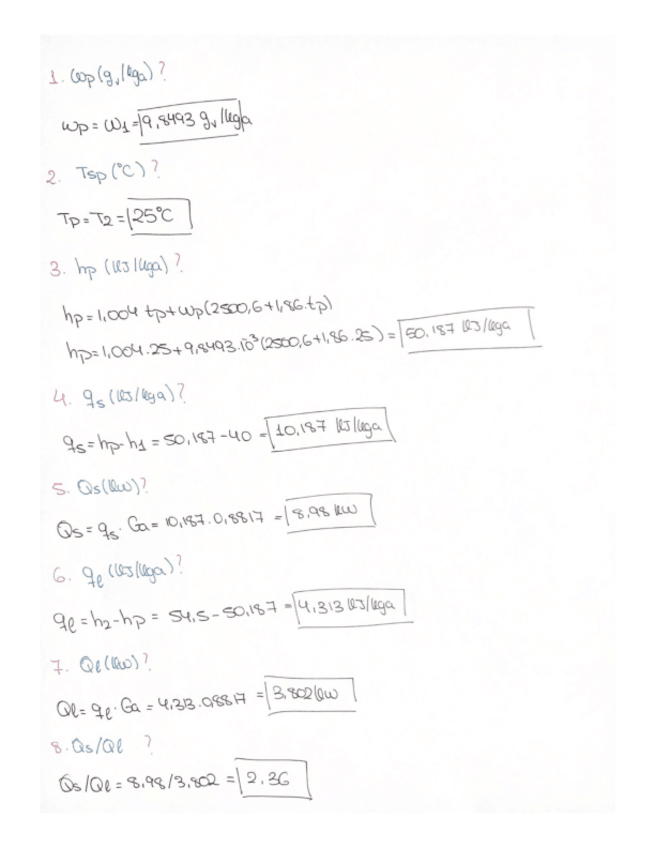 1. ωp (gv/kga)?
ωp = ω1 = 9,8493 gv/kga
2. Tsp (°C)?
Tp = T2 = 25°C
3. hp (kJ/kga)?
hp = 1,004 tp + ωp (2500,6 + 1,86 . tp)
hp = 1,004 . 25 + 9,8493 . 10³ (2500,6 + 1,86 . 25) = 50,187 kJ/kga
4. qs (kJ/kga)?
qs = hp - h1 = 50,187 - 40 = 10,187 kJ/kga
5. Qs (kW)?
Qs = qs . Ga = 10,187 . 0,8817 = 8,98 kW
6. qℓ (kJ/kga)?
qℓ = h2 - hp = 54,5 - 50,187 = 4,313 kJ/kga
7. Qℓ (kW)?
Qℓ = qℓ . Ga = 4,313 . 0,8817 = 3,802 kW
8. Qs/Qℓ ?
Qs/Qℓ = 8,98/3,802 = 2.36